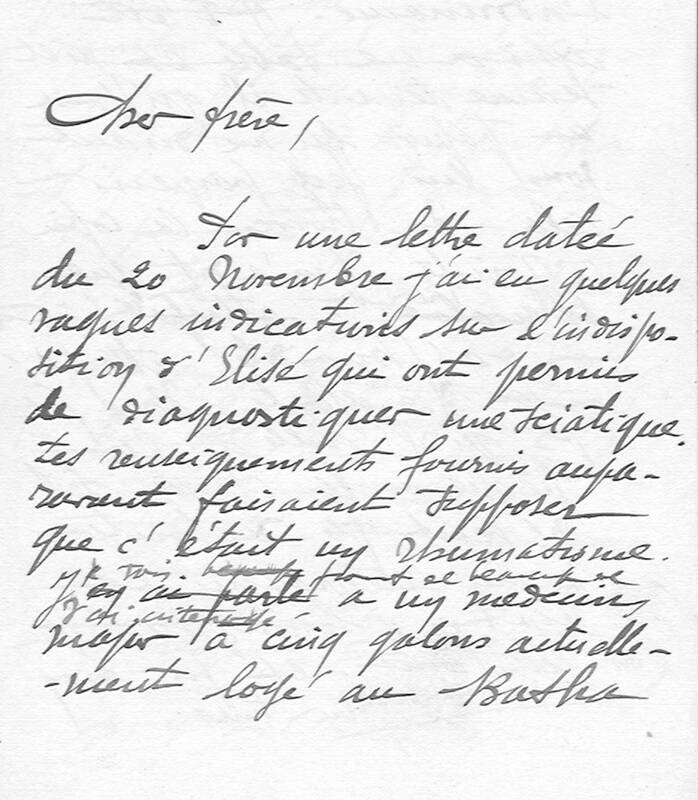 Cher frère,
Par une lettre datée
du 20 Novembre j'ai eu quelques
vagues indications sur l'indispo-
sition d'Elisé qui ont permis
de diagnostiquer une sciatique.
tes renseignements fournis aupa-
ravant faisaient supposer
que c'était un rhumatisme.
je vois de beaucoup de
j'en ai parlé à un médecin
j'ai
major à cinq galons actuelle-
-ment logé au Kasha